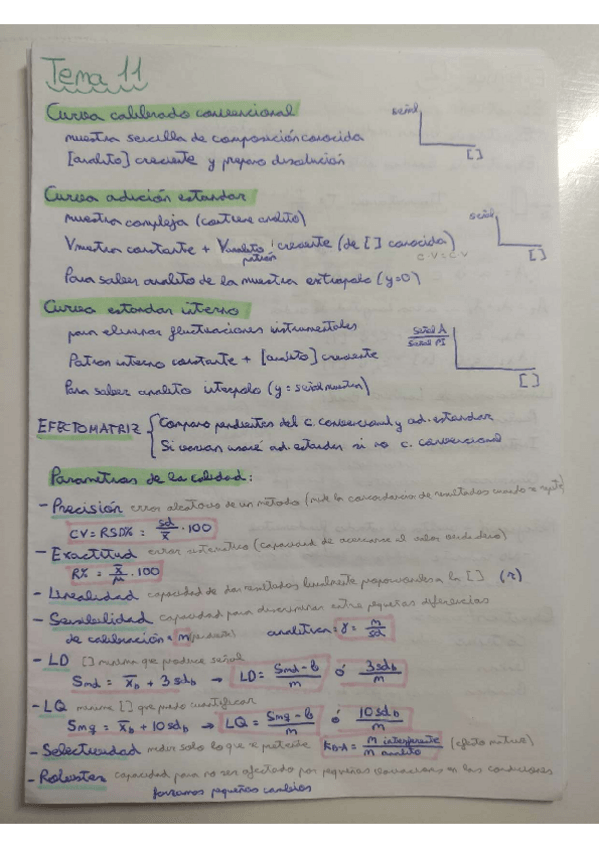 Tema 11
Curva calibrado convencional
señal
muestra sencilla de composición conocida
[analito] creciente y preparo disolución
[ ]
Curva adición estandar
muestra compleja (contiene analito)
señal
Vmuestra constante + Vanalito creciente (de [ ] conocida)
patrón
C·V = C·V
[ ]
Para saber analito de la muestra extrapolo (y=0)
Curva estandar interno
para eliminar fluctuaciones instrumentales
Señal A
Señal PI
Patron interno constante + [analito] creciente
[ ]
Para saber analito interpolo (y = señal muestra)
EFECTO MATRIZ { Comparo pendientes del c. convencional y ad. estandar
Si varian usaré ad. estandar si no c. convencional
Parametros de la calidad:
- Precisión error aleatorio de un método (mide la concordancia de resultados cuando se repite)
CV = RSD% = sd/x̄ · 100
- Exactitud error sistematico (capacidad de acercarse al valor verdadero)
R% = x̄/μ · 100
- Linealidad capacidad de dar resultados linealmente proporcionales a la [ ] (r)
- Sensibilidad capacidad para discriminar entre pequeñas diferencias
de calibración = m (pendiente) analitica = γ = m/sd
- LD [ ] minima que produce señal
Smd = x̄b + 3 sdb → LD = Smd - b/m ó 3sdb/m
- LQ minima [ ] que puedo cuantificar
Smq = x̄b + 10 sdb → LQ = Smq - b/m ó 10sdb/m
- Selectividad medir solo lo que se pretende KB,A = m interferente/m analito (efecto matriz)
- Robustez capacidad para no ser afectado por pequeñas variaciones en las condiciones
forzamos pequeños cambios